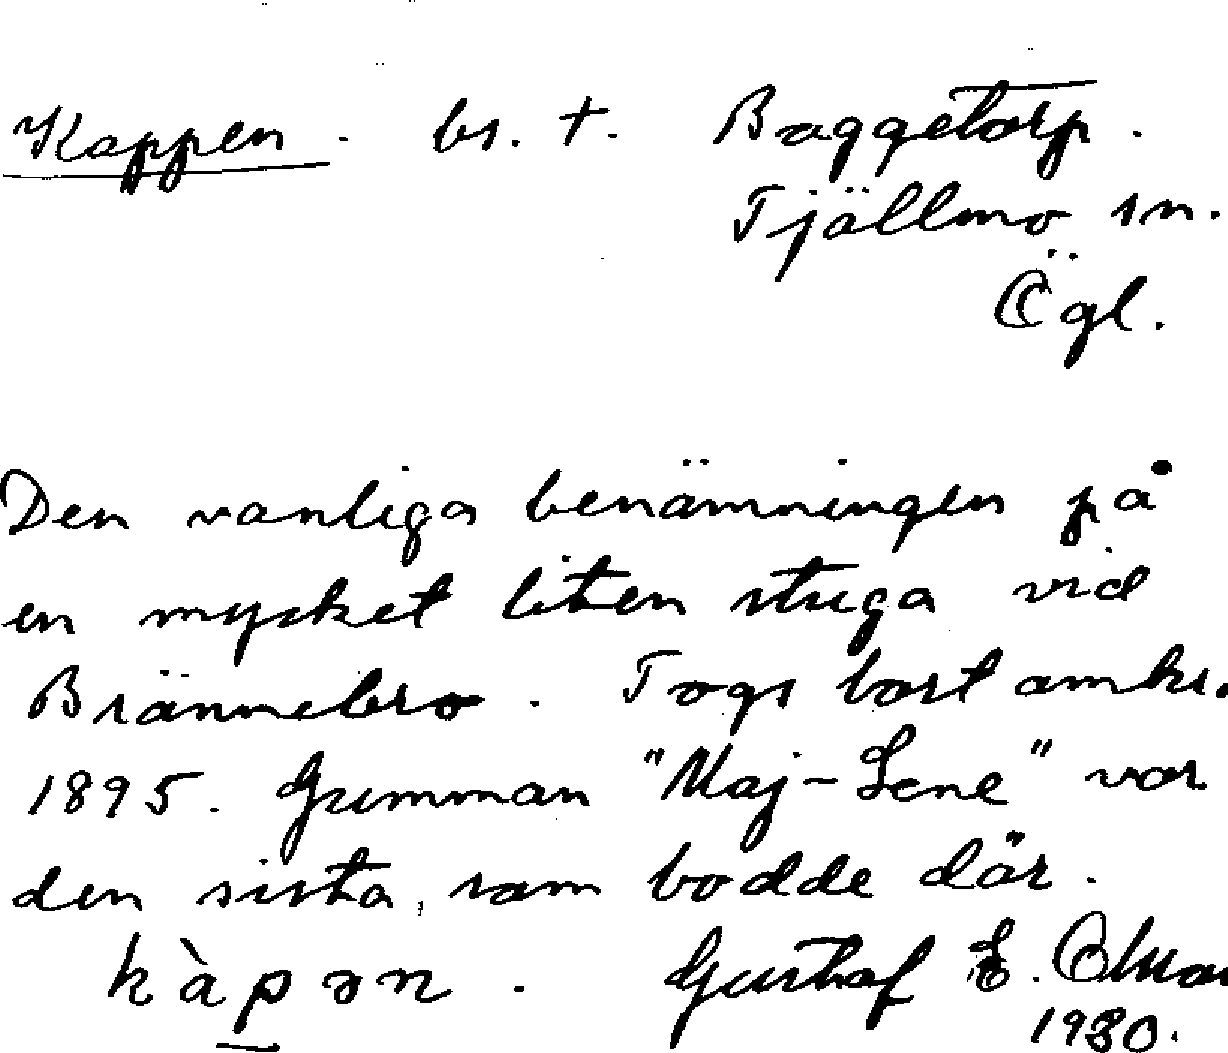 Kappen. bs. t. Baggetorp.
Tjällmo sn.
Ögl.
Den vanliga benämningen på
en mycket liten stuga vid
Brännebro. Togs bort omkr.
1895. Gumman "Maj-Lene" var
den sista, som bodde där.
kàpən. Gustaf E. Olsson
1930.